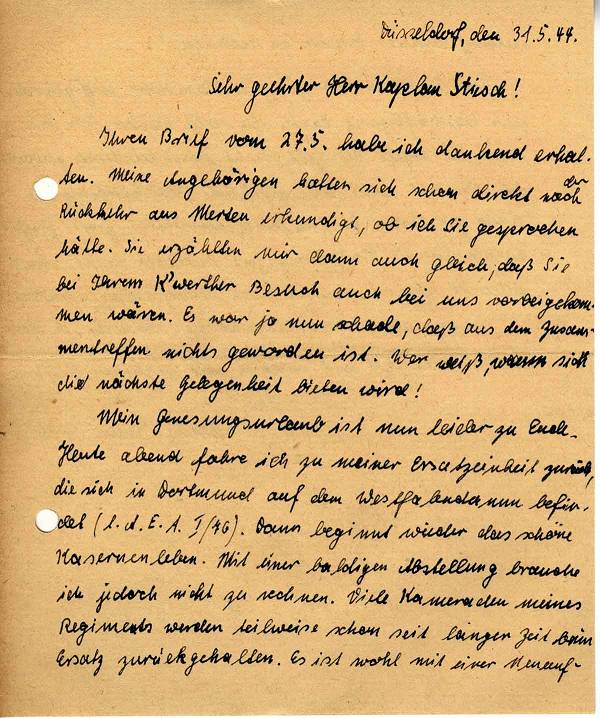 Düsseldorf, den 31.5.44.
Sehr geehrter Herr Kaplan Stiesch!
Ihren Brief vom 27.5. habe ich dankend erhal-
ten. Meine Angehörigen hatten sich schon direkt nach der
Rückkehr aus Merten erkundigt, ob ich Sie gesprochen
hätte. Sie erzählten mir dann auch gleich, daß Sie
bei Ihrem K'werther Besuch auch bei uns vorbeigekom-
men wären. Es war ja nun schade, daß aus dem Zusam-
mentreffen nichts geworden ist. Wer weiß, wann sich
die nächste Gelegenheit bieten wird!
Mein Genesungsurlaub ist nun leider zu Ende.
Heute abend fahre ich zu meiner Ersatzeinheit zurück,
die sich in Dortmund auf dem Westfalendamm befin-
det (l. A. E. A. I/76). Dann beginnt wieder das schöne
Kasernenleben. Mit einer baldigen Abstellung brauche
ich jedoch nicht zu rechnen. Viele Kameraden meines
Regiments werden teilweise schon seit langer Zeit beim
Ersatz zurückgehalten. Es ist wohl mit einer Neuauf-